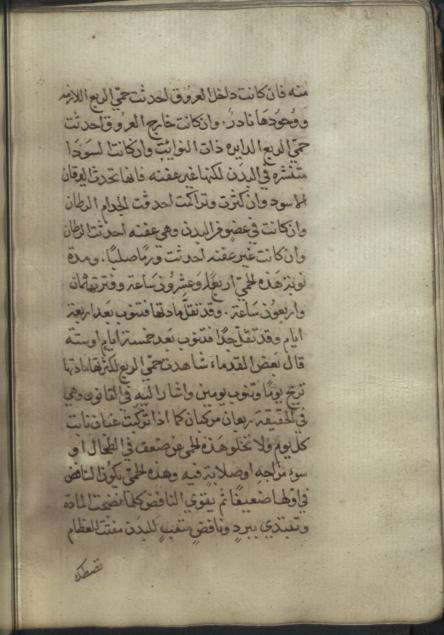 منه فان كانت داخل العروق احدثت حمّي الربع اللازمه
ووجودها نادر. وان كانت خارج العروق احدثت
حمّي الربع الدايره ذات النوايب وان كانت السودا
منتشره في البدن لكنها غير عفنه فانها تحدث اليرقان
الاسود وان كثرت وتراكمت احدثت الجذام السرطان
وان كانت في عضو من البدن وهي عفنه احدثت السرطان
وان كانت غير عفنه احدثت ورمًا صلبًا. ومدة
نوبة هذه الحمّي اربعة وعشرون ساعة وفترتها ثمان
واربعون ساعة. وقد تقل مادتها فتنوب بعد اربعة
ايام وقد تقل جدًا فتنوب بعد خمسة ايام او سته
قال بعض القدماء شاهدت حمّي الربع لكثرة مادتها
تريح يومًا وتنوب يومين واشار اليه في القانون وهي
في الحقيقة ربعان مركبان كما اذا تركبت غبان نابت
كل يوم ولا تخلو هذه الحمّي عن ضعف في الطحال او
سوء مزاجه او صلابة فيه وهذه الحمّي يكون النافض
في اولها ضعيفًا ثم يقوي النافض كلما نضجت المادة
وتبتدي ببرد ونافض متعب للبدن مفتت للعظام